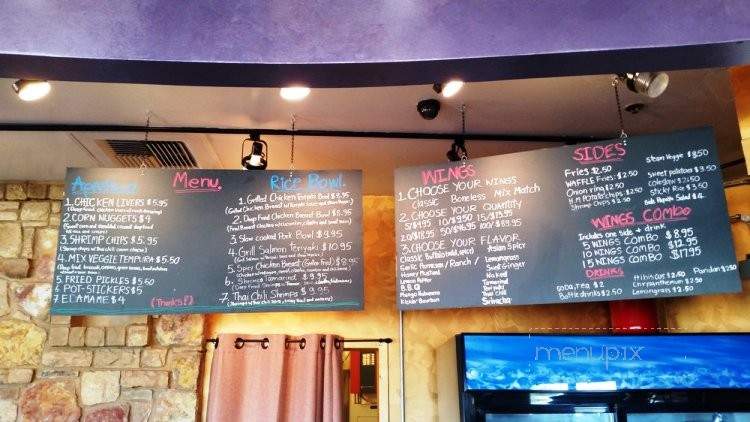 Appetizer
Menu.
Rice Bowl
1. CHICKEN LIVERS $5.95
2. CORN NUGGETS $4
3. SHRIMP CHIPS $5.95
4. MIX VEGGIE TEMPURA $5.50
5. FRIED PICKLES $5.50
6. POT-STICKERS $5
7. EDAMAME $4
(Thanks!!)
1. Grilled Chicken Teriyaki Bowl $8.95
2. Deep Fried Chicken Breast Bowl $8.95
3. Slow cooked Pork Bowl $9.95
4. Grill Salmon Teriyaki $10.95
5. Spicy Chicken Breast $8.95
6. Shrimp Tamarind $9.95
7. Thai Chili Shrimps $9.95
WINGS
1. CHOOSE YOUR WINGS
Classic Boneless Mix Match
2. CHOOSE YOUR QUANTITY
5/$4.95 10/$8.950 15/$13.95
20/$18.95 50/$46.95 100/$83.95
3. CHOOSE YOUR FLAVOR
Classic (Buffalo, mild, spicy) Dragon Spicy
Garlic Parmesan / Ranch / Lemongrass
Honey Mustard Sweet Ginger
Lemon Pepper Naked
B.B.Q Tamarind
Mango Habanero Thai Chili
Kickin' Bourbon Sriracha
SIDES
Fries $2.50 Steam Veggie $3.50
WAFFLE Fries $2.50
Onion ring $2.50 Sweet potatoes $3.50
H.M Potatochips $2.50 coleslaw $2.50
Shrimp Chips $2.50 Sticky Rice $3.50
WINGS COMBO
Includes one side + drink
5 WINGS COMBO $8.95
10 WINGS COMBO $12.95
15 WINGS COMBO $17.95
DRINKS
Soda, tea $2 Hibiscus $2.50 Pandan $2.50
Bottle drinks $2.50 Chrysanthemum $2.50
Lemongrass $2.50
menupix